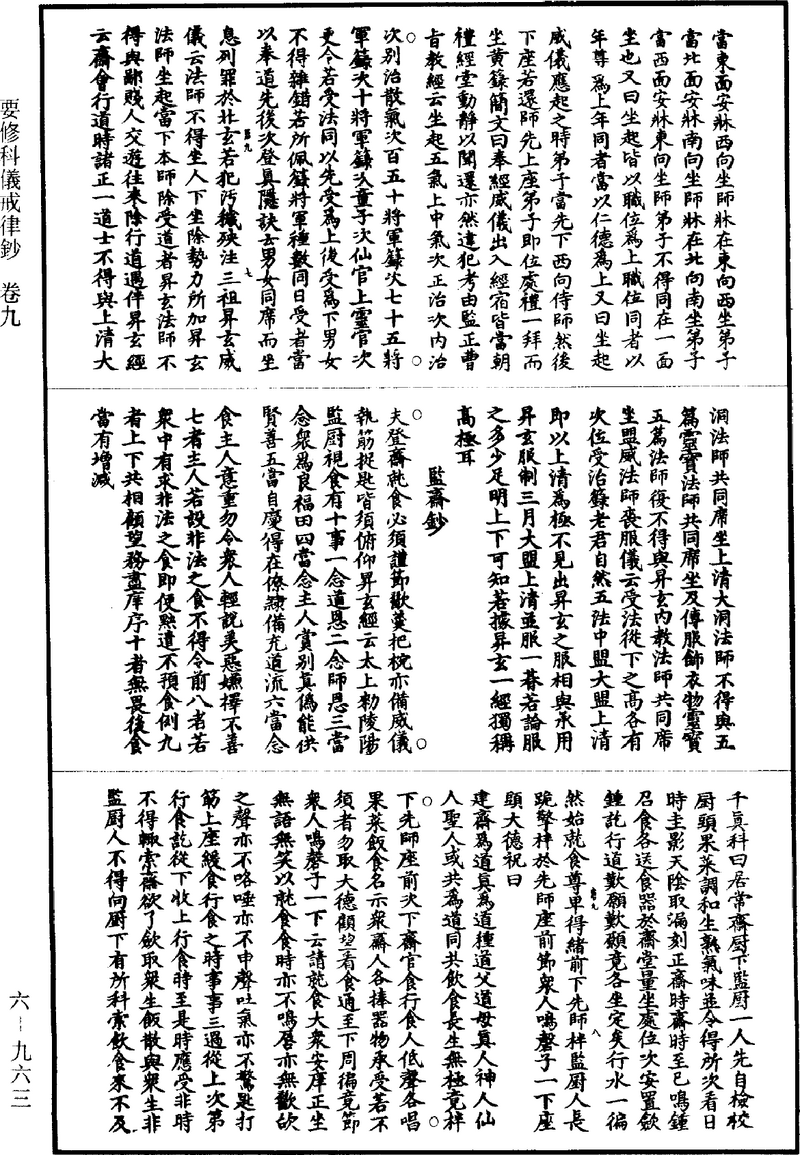 當東面安牀西向坐師牀在東向西坐弟子
當北面安牀南向坐師牀在北向南坐弟子
當西面安牀東向坐師弟子不得同在一面
坐也又曰坐起皆以職位爲上職位同者以
年尊爲上年同者當以仁德爲上又曰坐起
威儀應起之時弟子當先下西向侍師然後
下座若還師先上座弟子即位處禮一拜而
坐黃籙簡文曰奉經威儀出入經宿皆當朝
禮經堂動靜以聞還亦然違犯考由監正曹
旨教經云坐起五氣上中氣次正治次內治
次別治散氣次百五十將軍籙次七十五將
軍籙次十將軍籙次童子次仙官上靈官次
更令若受法同以先受爲上後受爲下男女
不得雜錯若所佩籙將軍種數同日受者當
以奉道先後次登真隱訣云男女同席而坐
息列罪於北玄若犯污穢殃注三祖昇玄威
儀云法師不得坐人下坐除勢力所加昇玄
法師坐起當下本師除受道者昇玄法師不
得與鄙賤人交遊往來除行道遇伴昇玄經
云齋會行道時諸正一道士不得與上清大
洞法師共同席坐上清大洞法師不得與五
篇靈寶法師共同席坐及傳服飾衣物靈寶
五篇法師復不得與昇玄內教法師共同席
坐盟威法師喪服儀云受法從下之高各有
次位受治籙老君自然五法中盟大盟上清
即以上清爲極不見出昇玄之服相與承用
昇玄服制三月大盟上清並服一朞若論服
之多少足明上下可知若據昇玄一經獨稱
高極耳
監齋鈔
夫登齋就食必須謹節歠羹把椀亦備威儀
執筯捉匙皆須俯仰昇玄經云太上勑陵陽
監厨視食有十事一念道恩二念師恩三當
念衆爲良福田四當念主人賞別真偽能供
賢善五當自慶得在僚隸備充道流六當念
食主人意重勿令衆人輕說美惡嫌擇不善
七者主人若設非法之食不得令前八者若
衆中有求非法之食即便黙遣不預食例九
者上下共相顧望務盡庠序十者無畏後食
當有增減
千真科曰居常齋厨下監厨一人先自檢校
厨頭果菜調和生熟氣味並令得所次看日
時圭影天陰取漏刻正齋時齋時至已鳴鍾
召食各送食器於齋堂量坐處位次安置歛
鍾訖行道歎願歎願竟各坐定矣行水一徧
然始就食尊卑得緒前下先師柈監厨人長
跪擎柈於先師座前節衆人鳴磬子一下座
頭大德祝曰
建齋爲道真爲道種道父道母真人神人仙
人聖人或共爲道同共飲食長生無極竟柈
下先師座前次下齋官食行食人低聲各唱
果菜飯食名示衆齋人各捧器物承受若不
須者勿取大德顧望看食通至下周徧竟節
衆人鳴磬子一下云請就食大衆安庠正坐
無語無笑以就食食時亦不鳴脣亦無歠㰹
之聲亦不咯唾亦不申聲吐氣亦不驚匙打
筯上座緩食行食之時事事三過從上次第
行食訖從下收上行食時至是時應受非時
不得輙索齋欲了歛取衆生飯散與衆生非
監厨人不得向厨下有所科索飲食來不及
要修科儀戒律鈔 卷九
六－九六三
第九 七
第九 八